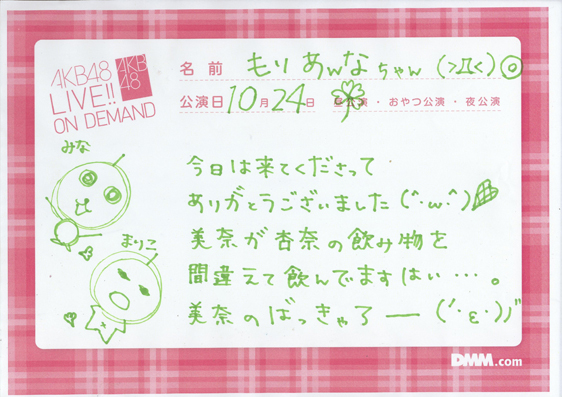 AKB48
LIVE!!
ON DEMAND
AKB
48
名 前 もり あんなちゃん (>Д<)◎
公演日 10月24日 昼公演・おやつ公演・夜公演
みな
まりこ
今日は来てくださって
ありがとうございました(^・ω・^)
美奈が杏奈の飲み物を
間違えて飲んでますはぃ…。
美奈のばっきゃろー(´・ε・)ノ
DMM.com